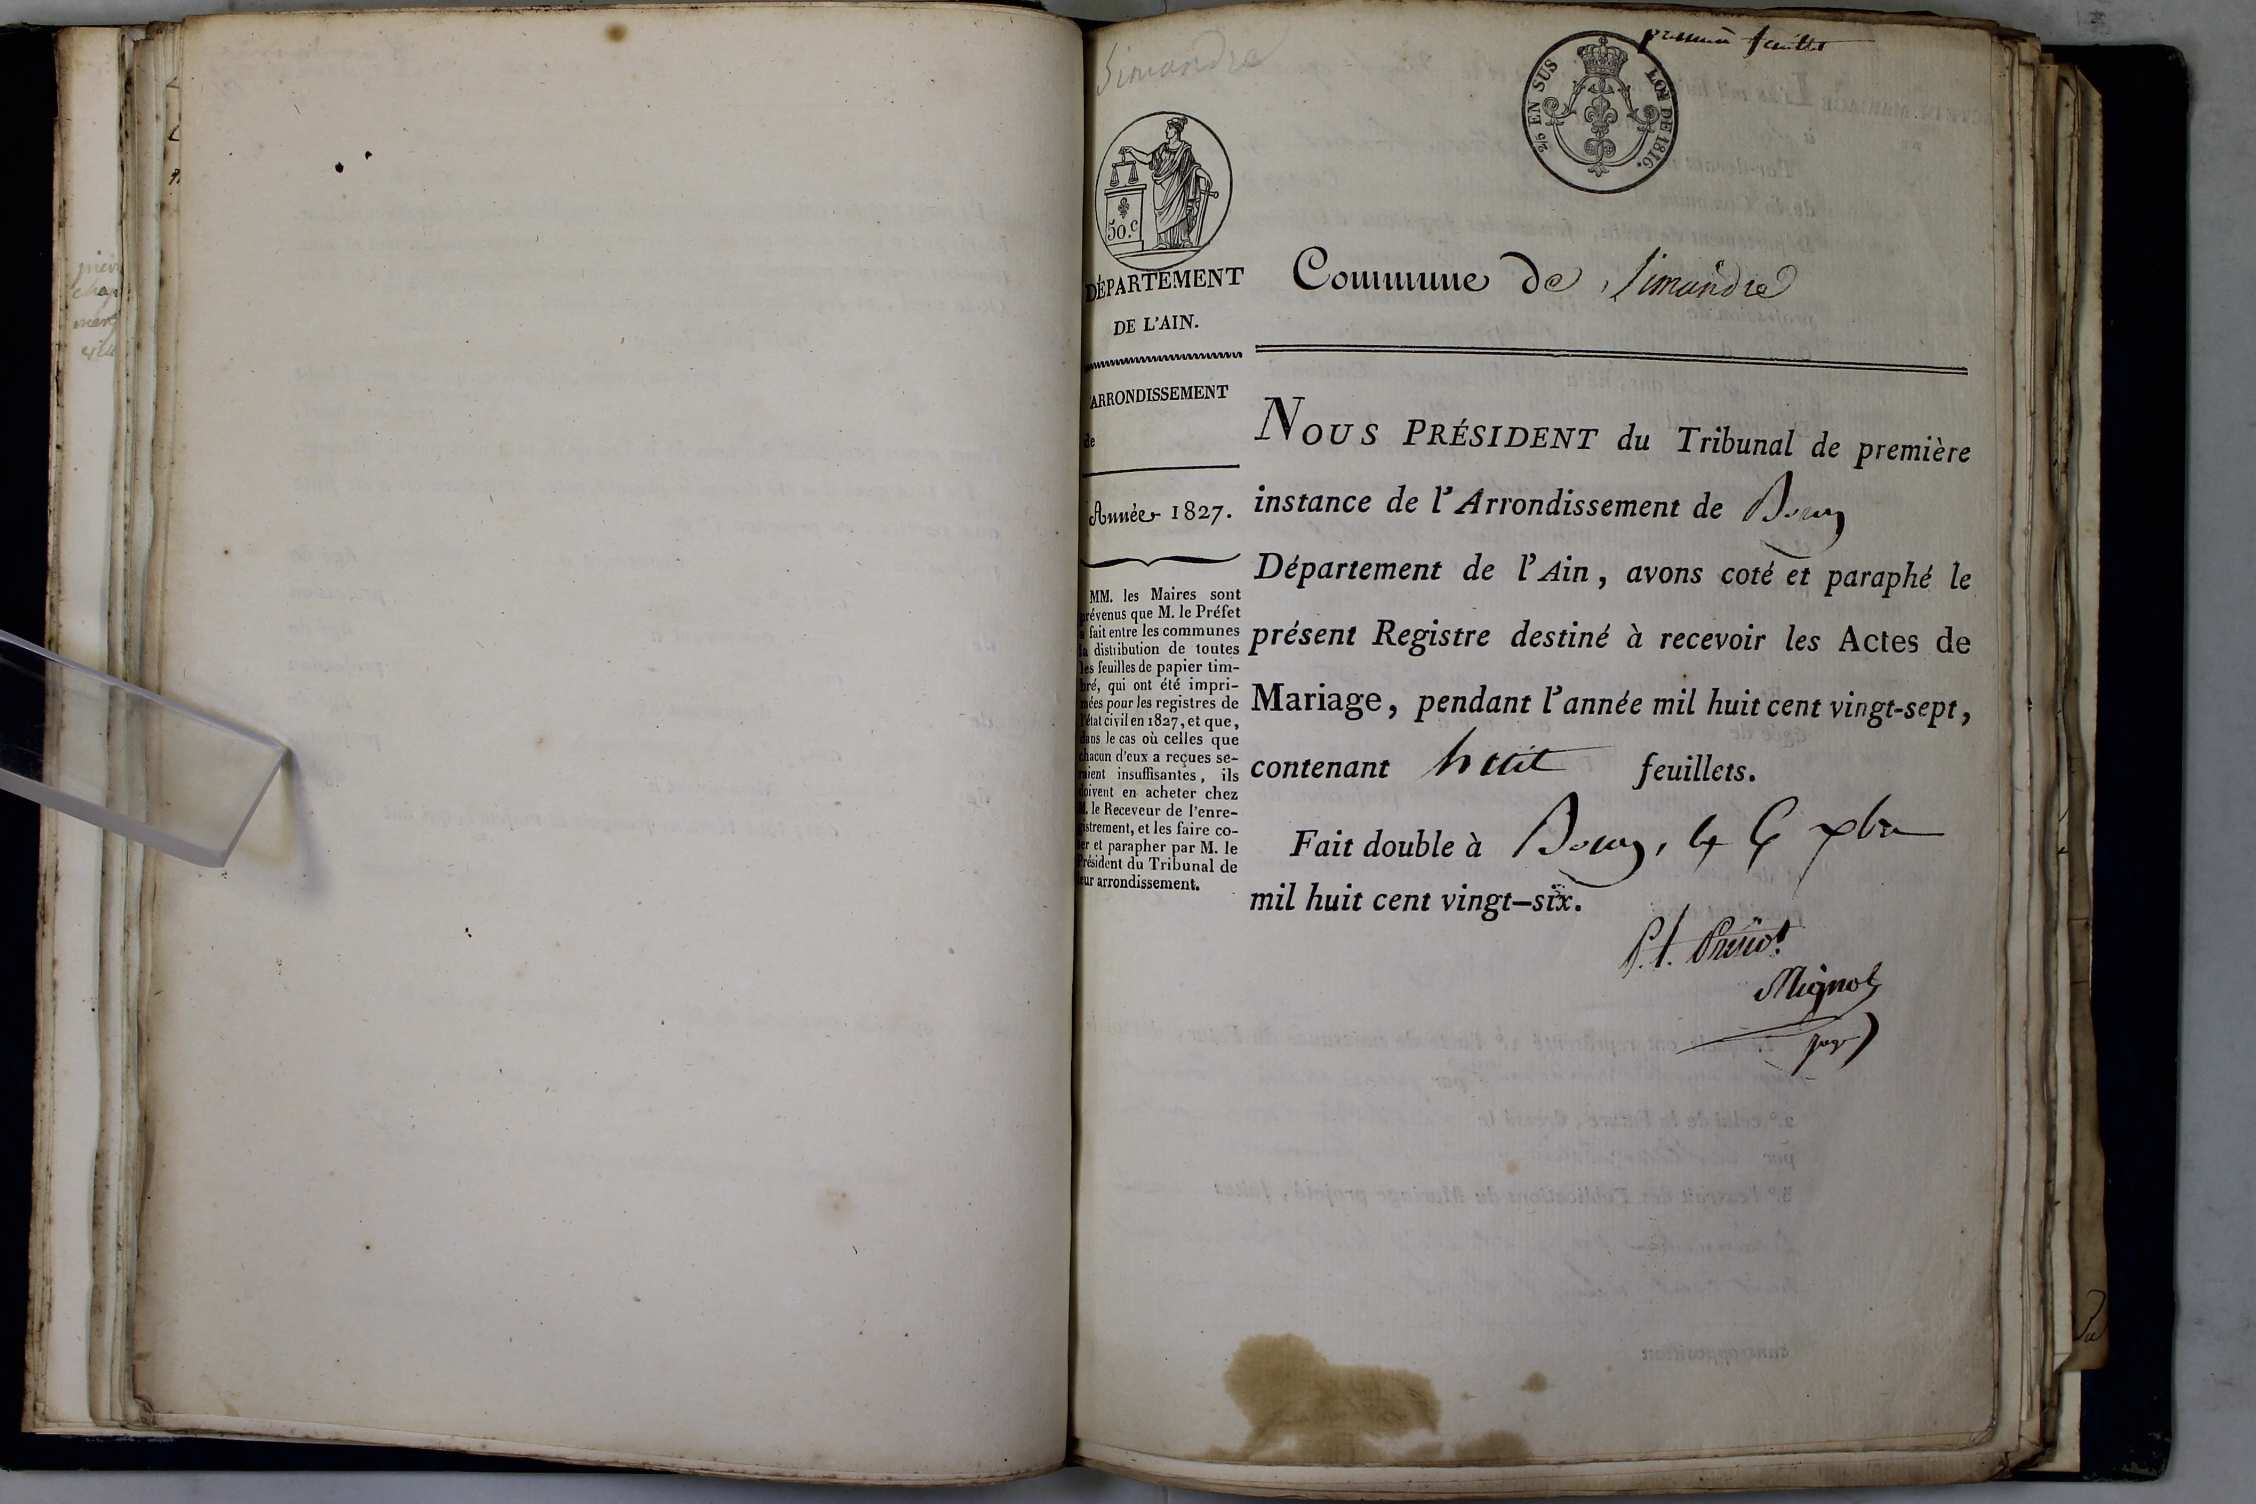 Simandre
premier feuillet
2/5 EN SUS
LOI DE 1816.
50.c
DÉPARTEMENT
DE L'AIN.
ARRONDISSEMENT
de
Année 1827.
MM. les Maires sont
prévenus que M. le Préfet
a fait entre les communes
la distribution de toutes
les feuilles de papier tim-
bré, qui ont été impri-
mées pour les registres de
l'état civil en 1827, et que,
dans le cas où celles que
chacun d'eux a reçues se-
raient insuffisantes, ils
doivent en acheter chez
M. le Receveur de l'enre-
gistrement, et les faire co-
ter et parapher par M. le
Président du Tribunal de
leur arrondissement.
Commune de Simandre
NOUS PRÉSIDENT du Tribunal de première
instance de l'Arrondissement de Bourg
Département de l'Ain, avons coté et paraphé le
présent Registre destiné à recevoir les Actes de
Mariage, pendant l'année mil huit cent vingt-sept,
contenant huit feuillets.
Fait double à Bourg, le 6 xbre
mil huit cent vingt-six.
Mignot
juge